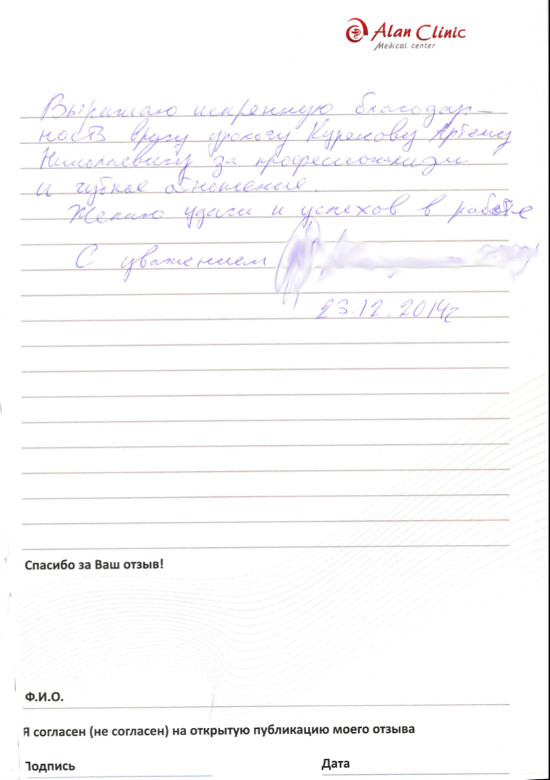 Alan Clinic
Medical center
Выражаю искреннюю благодар-
ность врачу урологу Курекову Артему
Николаевичу за профессионализм
и чуткое отношение.
Желаю удачи и успехов в работе
С уважением
23.12.2014г
Спасибо за Ваш отзыв!
Ф.И.О.
Я согласен (не согласен) на открытую публикацию моего отзыва
Подпись Дата